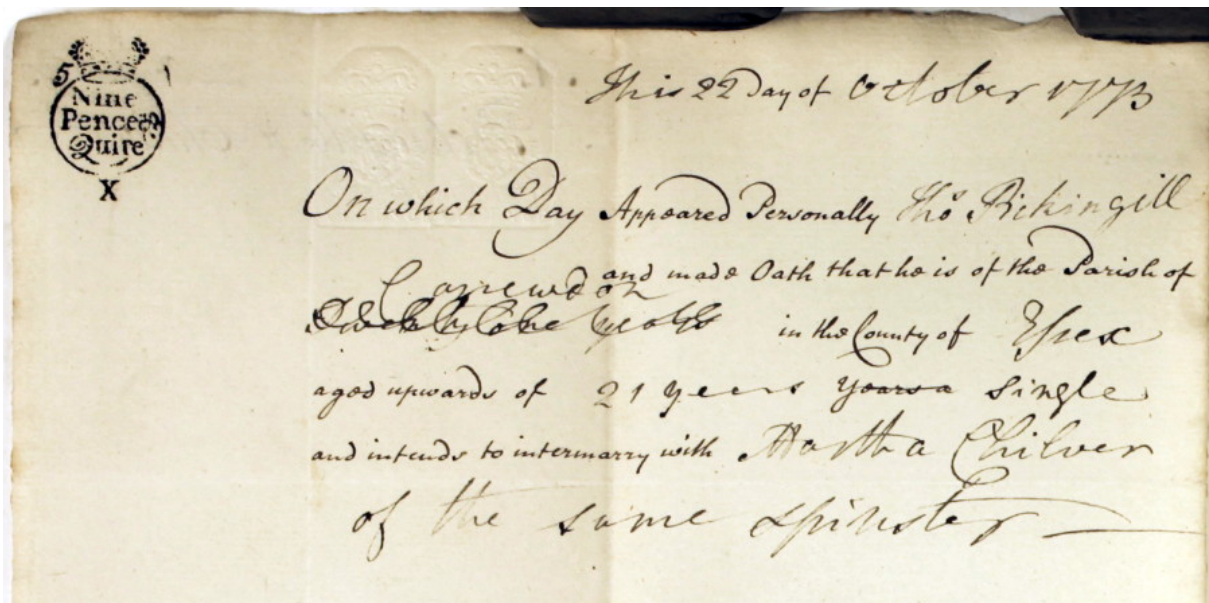 Nine
Pence ⅌
Quire
X
This 22 Day of October 1773
On which Day Appeared Personally Thos Rikingill
and made Oath that he is of the Parish of
Canewdon
in the County of Essex
aged upwards of 21 years years a single
and intends to intermarry with Martha Chilver
of the same spinster